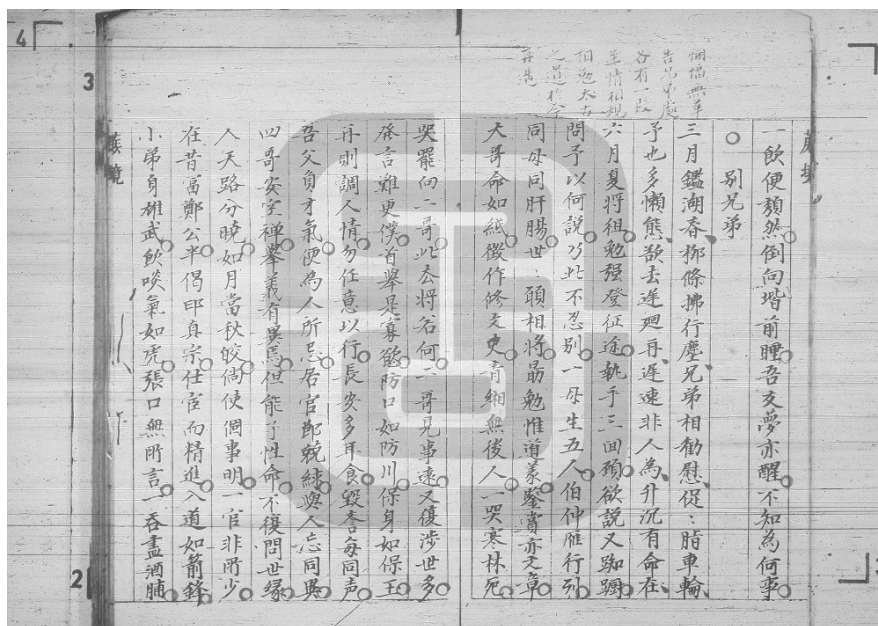 悃愊無華
告兄弟處
各有一段
至情相規
相勉太古
之道於今
再遇
一飲便頹然倒向堦前睡吾友夢亦醒不知為何事
別兄弟
三月鑑湖春柳條拂行塵兄弟相勸慰促〻脂車輪
予也多懶熊欲去遲廻再遲速非人為升沉有命在
六月夏將徂勉强登征途執手三回頭欲說又踟躕
問予以何說乃此不忍別一母生五人伯仲雁行列
同母同肝腸世〻頭相將勗勉惟道義鑒賞亦文章
大哥命如紙徵作修文史青緗無後人一哭寒林死
哭罷向二哥此去將若何二哥見事遠又復涉世多
添言難更僕首舉是寡慾防口如防川保身如保玉
再則調人情勿任意以行長安多耳食毀譽每同声
吾父負才氣便為人所忌居官配軾綍與人忘同異
四哥安室禪舉義有異焉但能了性命不復問世缘
人天路分曉如月當秋皎倘使個事明一官非所少
在昔富鄭公半偈印真宗任官而精進入道如箭鋒
小弟身雄武飲啖氣如虎張口無所言一吞盡酒脯
4
3
2